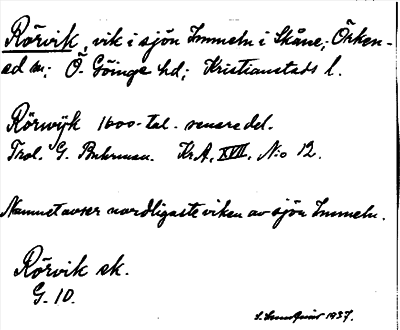 Rörvik, vik i sjön Immeln i Skåne; Örken-
ed sn; Ö. Göinge hd; Kristianstads l.
Rörwijk 1600-tal. senare del.
Trol. G. Buhrman. Kr.A. XVII. N:o 12.
Namnet avser nordligaste viken av sjön Immeln.
Rörvik sk.
G. 10.
1937.